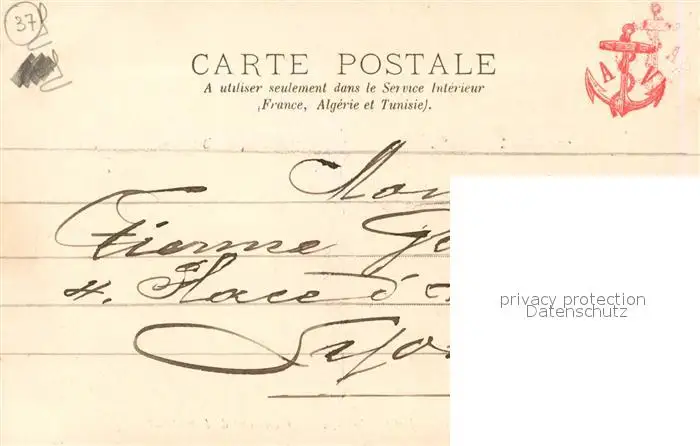 37
CARTE POSTALE
A utiliser seulement dans le Service Intérieur
(France, Algérie et Tunisie).
A V
Mon
Pierre Ge
4. Place d'
Lyon
privacy protection
Datenschutz